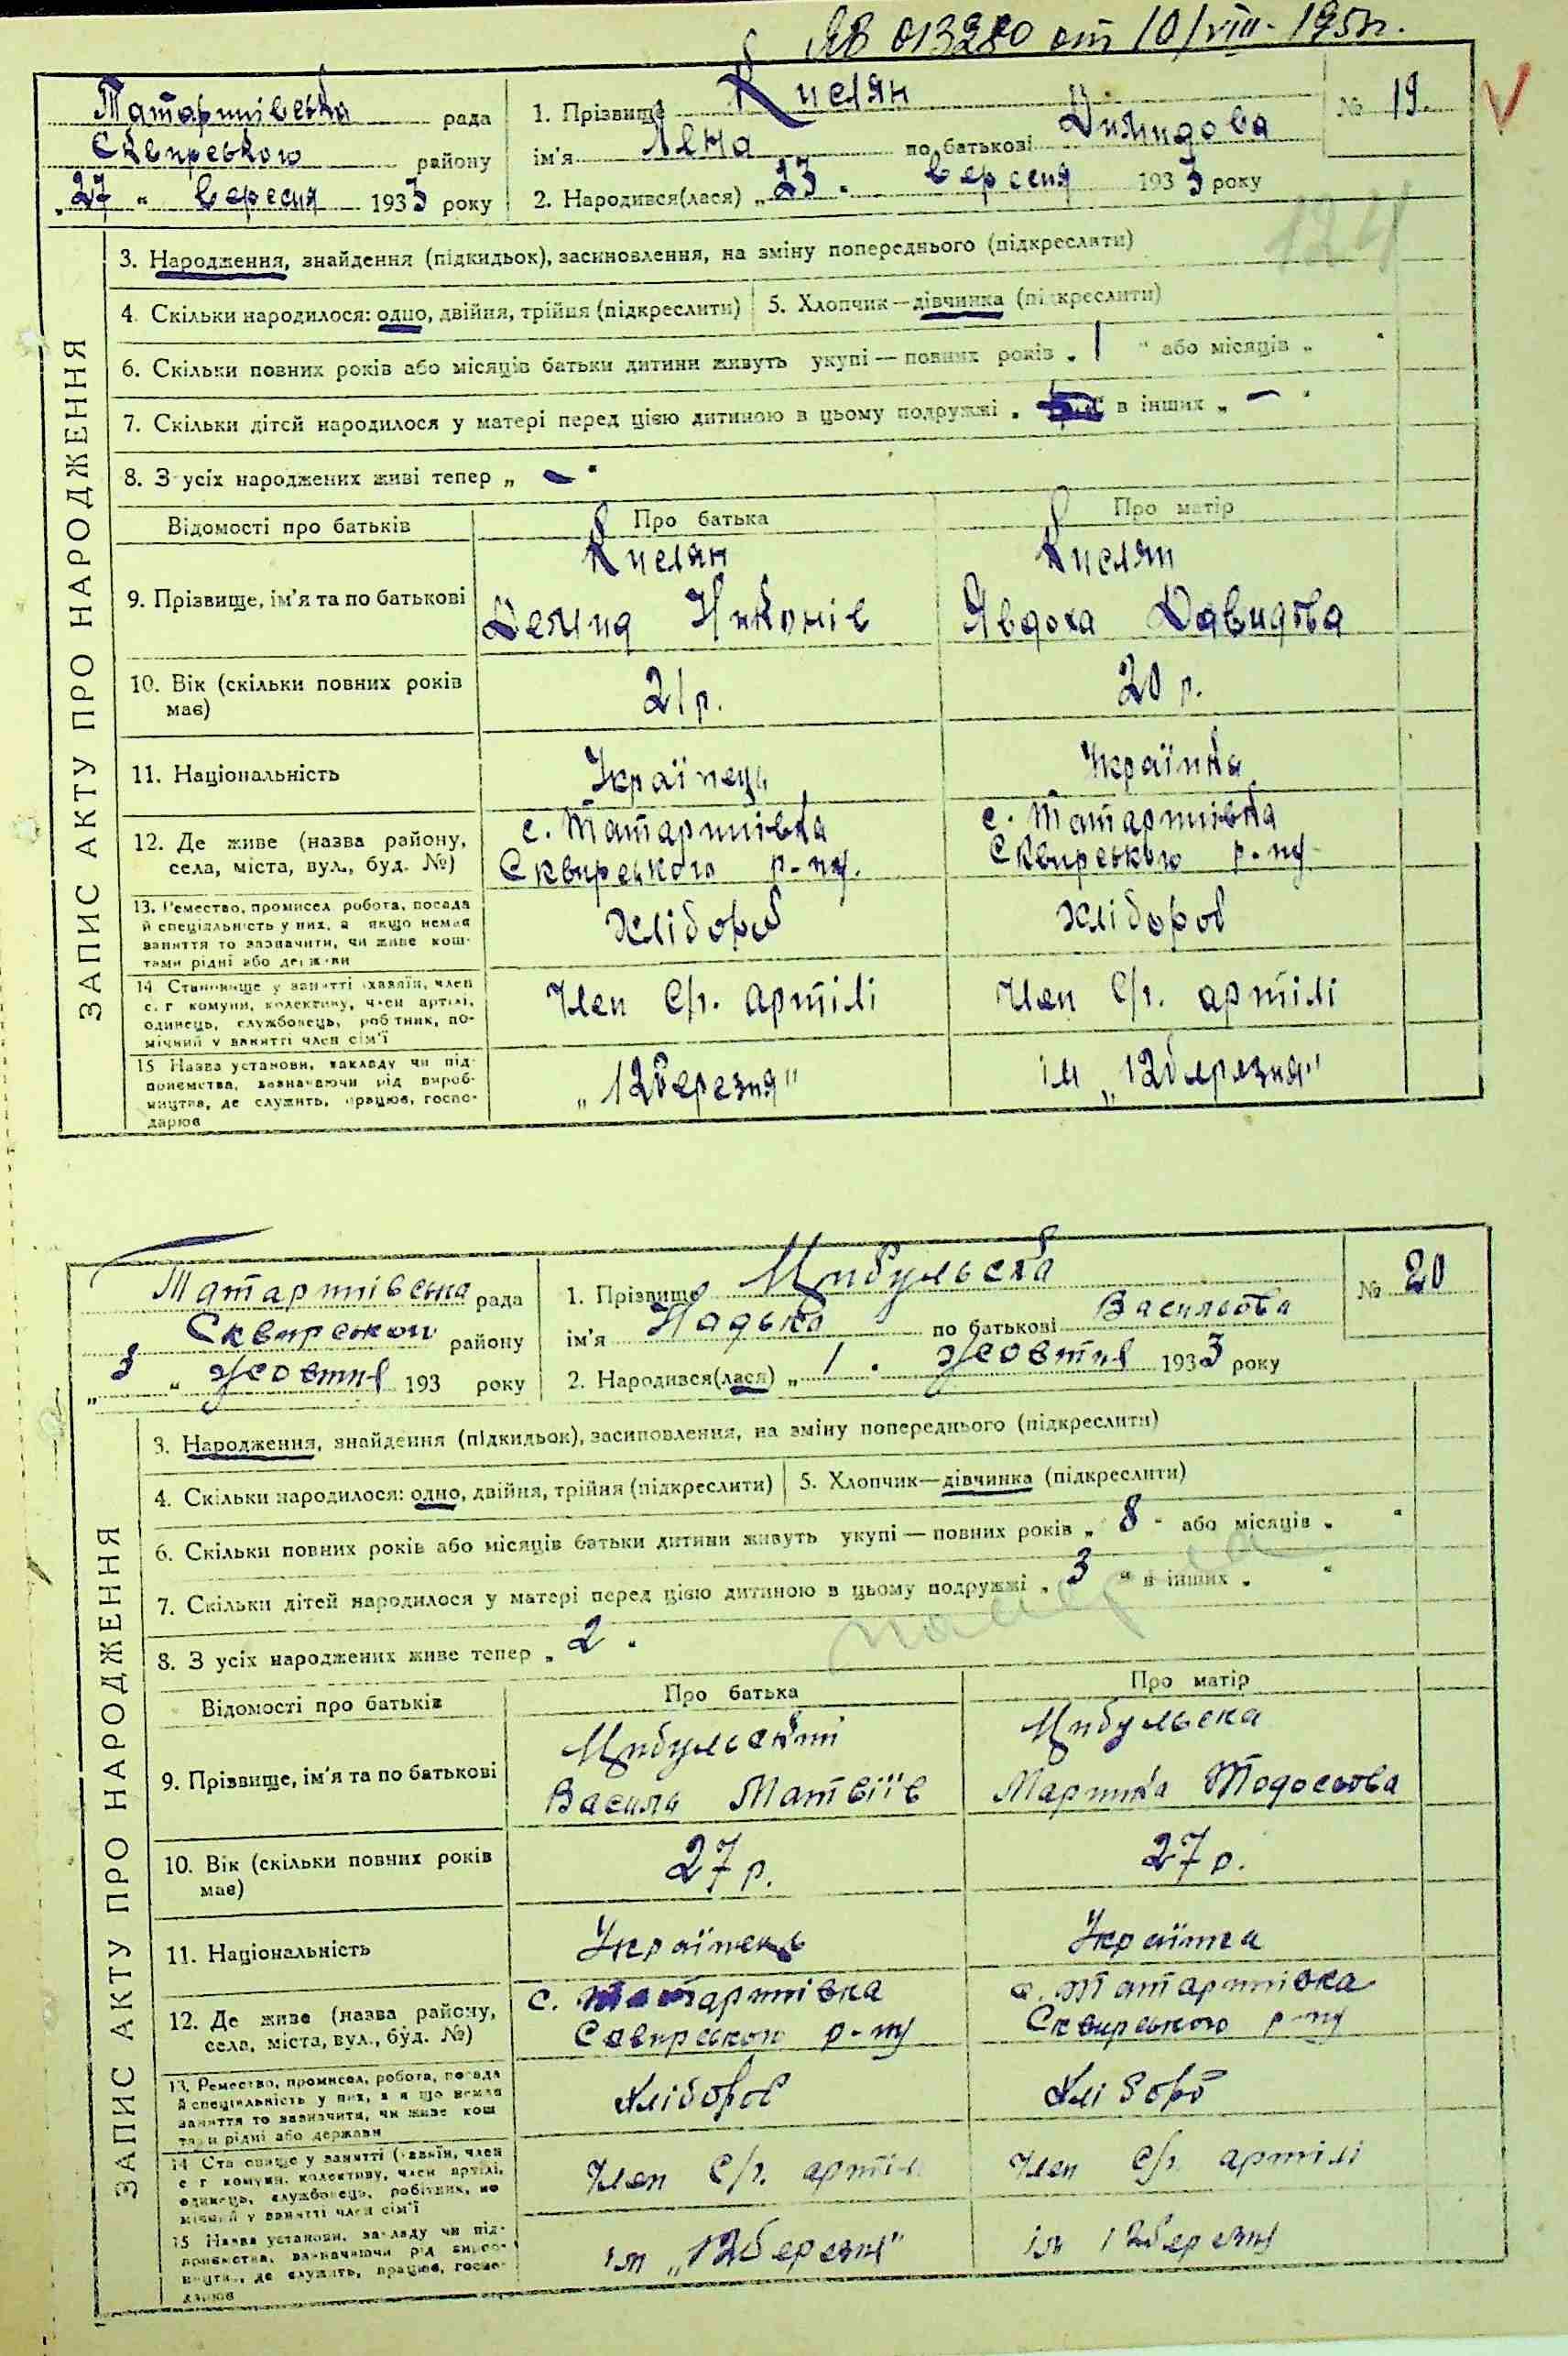 ЯВ 013280 от 10/VIII-195 г.
Татаршівська рада
Сквирського району
„27“ вересня 1933 року
1. Прізвище Кислян
№ 19.
ім'я Лєна по батькові Димидова
2. Народився(лася) „23“ вересня 1933 року
124
ЗАПИС АКТУ ПРО НАРОДЖЕННЯ
3. Народження, знайдення (підкидьок), засиновлення, на зміну попереднього (підкреслити)
4. Скільки народилося: одно, двійня, трійня (підкреслити)
5. Хлопчик—дівчинка (підкреслити)
6. Скільки повних років або місяців батьки дитини живуть укупі — повних років „1“ або місяців „ “
7. Скільки дітей народилося у матері перед цією дитиною в цьому подружжі „ “ в інших „—“
8. З усіх народжених живі тепер „—“
Відомості про батьків
Про батька
Про матір
9. Прізвище, ім'я та по батькові
Кислян
Демид Никонів
Кислян
Явдоха Давидова
10. Вік (скільки повних років має)
21 р.
20 р.
11. Національність
Українець
Українка
12. Де живе (назва району,
села, міста, вул., буд. №)
с. Татаршівка
Сквирського р-ну.
с. Татаршівка
Сквирського р-ну
13. Ремество, промисел робота, посада
й спеціяльність у них, а якщо немає
заняття то зазначити, чи живе кош-
тами рідні або держави
Хлібороб
Хлібороб
14 Становище у занятті (хазяїн, член
с. г комуни, колективу, член артілі,
одинець, службовець, робітник, по-
мічний у занятті член сім'ї
Член С/г. артілі
Член С/г. артілі
15 Назва установи, закладу чи під-
приємства, зазначаючи рід вироб-
ництва, де служить, працює, госпо-
дарює
„12 березня“
ім „12 березня“
Татаршівська рада
Сквирською району
„3“ жовтня 193 року
1. Прізвище Цибульска
№ 20
ім'я Надька по батькові Васильова
2. Народився(лася) „1“ жовтня 1933 року
ЗАПИС АКТУ ПРО НАРОДЖЕННЯ
3. Народження, знайдення (підкидьок), засиновлення, на зміну попереднього (підкреслити)
4. Скільки народилося: одно, двійня, трійня (підкреслити)
5. Хлопчик—дівчинка (підкреслити)
6. Скільки повних років або місяців батьки дитини живуть укупі — повних років „8“ або місяців „ “
7. Скільки дітей народилося у матері перед цією дитиною в цьому подружжі „3“ в інших „ “
8. З усіх народжених живе тепер „2“
Відомості про батьків
Про батька
Про матір
9. Прізвище, ім'я та по батькові
Цибульский
Василь Матвіїв
Цибульска
Маринка Тодосьова
10. Вік (скільки повних років має)
27 р.
27 р.
11. Національність
Українець
Українка
12. Де живе (назва району,
села, міста, вул., буд. №)
с. Татаршівка
Сквирською р-ну
с. Татаршівка
Сквирського р-ну
13. Ремество, промисел, робота, посада
й спеціяльність у них, а якщо немає
заняття то зазначити, чи живе кош
тами рідні або держави
Хлібороб
Хлібороб
14 Становище у занятті (хазяїн, член
с г комуни, колективу, член артілі,
одинець, службовець, робітник, по
мічний у занятті член сім'ї
Член С/г. артілі
Член С/г. артілі
15 Назва установи, закладу чи під-
приємства, зазначаючи рід вироб-
ництва, де служить, працює, госпо-
дарює
ім „12 березня“
ім 12 березня